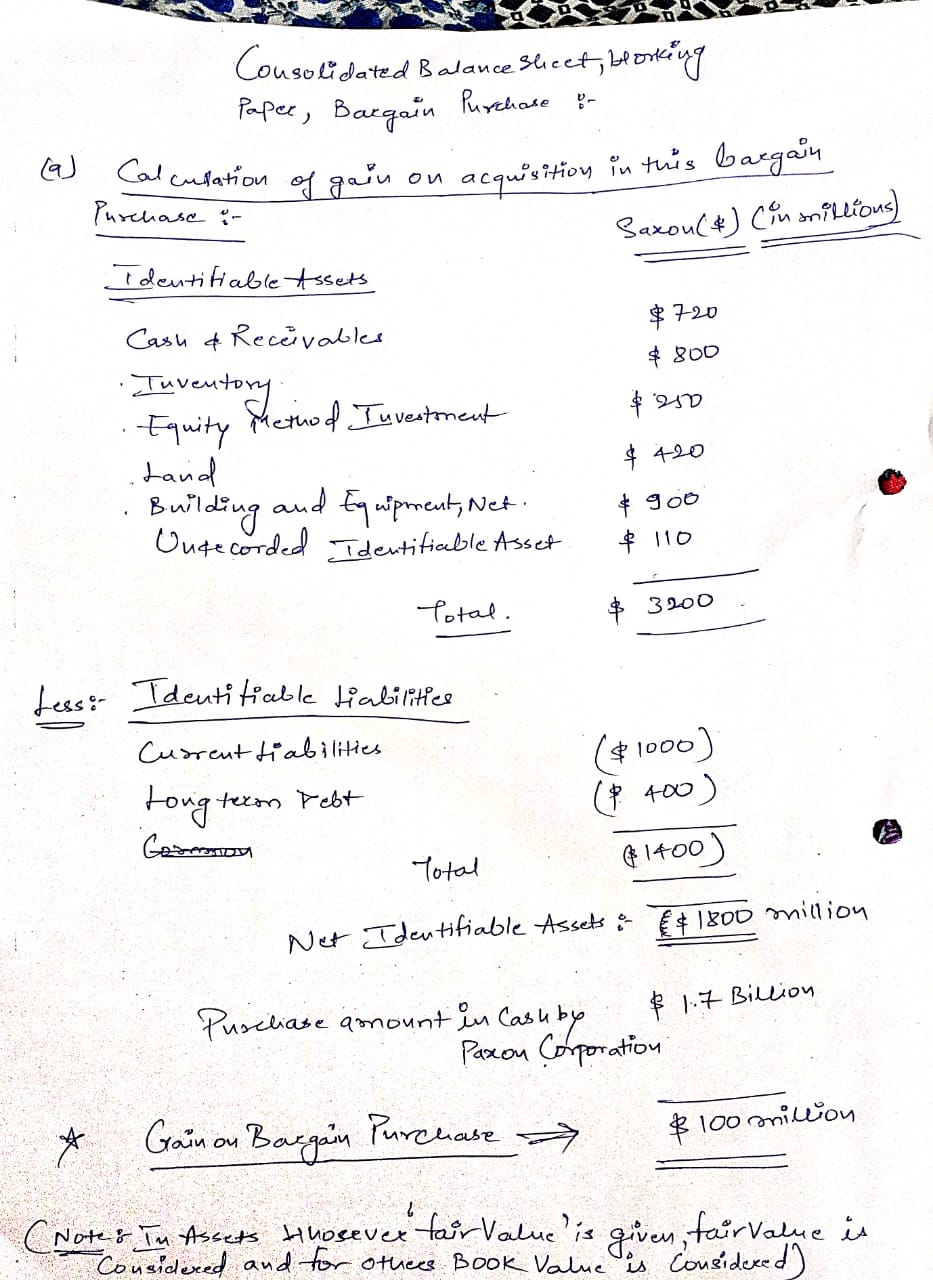 Consolidated Balance Sheet, Working
Paper, Bargain Purchase :-
(a) Calculation of gain on acquisition in this bargain
Purchase :-
Saxon($) (in millions)
Identifiable Assets
Cash & Receivables $ 720
. Inventory. $ 800
. Equity Method Investment $ 250
. Land $ 420
. Building and Equipment, Net. $ 900
Unrecorded Identifiable Asset $ 110
Total. $ 3200
Less:- Identifiable Liabilities
Current Liabilities ($ 1000)
Long term Debt ($ 400)
Common
Total ($ 1400)
Net Identifiable Assets :- $ 1800 million
Purchase amount in Cash by $ 1.7 Billion
Paxon Corporation
☆ Gain on Bargain Purchase → $ 100 million
(Note : In Assets Whosever 'fair Value' is given, fair Value is
Considered and for others Book Value is Considered)